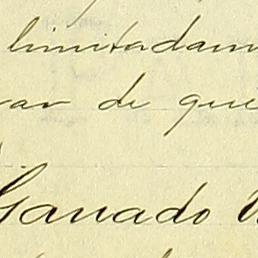 limitadam
var de que
Ganado